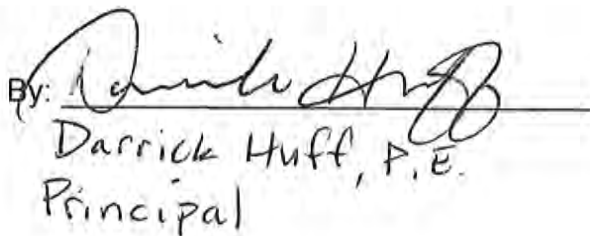 By: Darrick Huff
Darrick Huff, P.E.
Principal